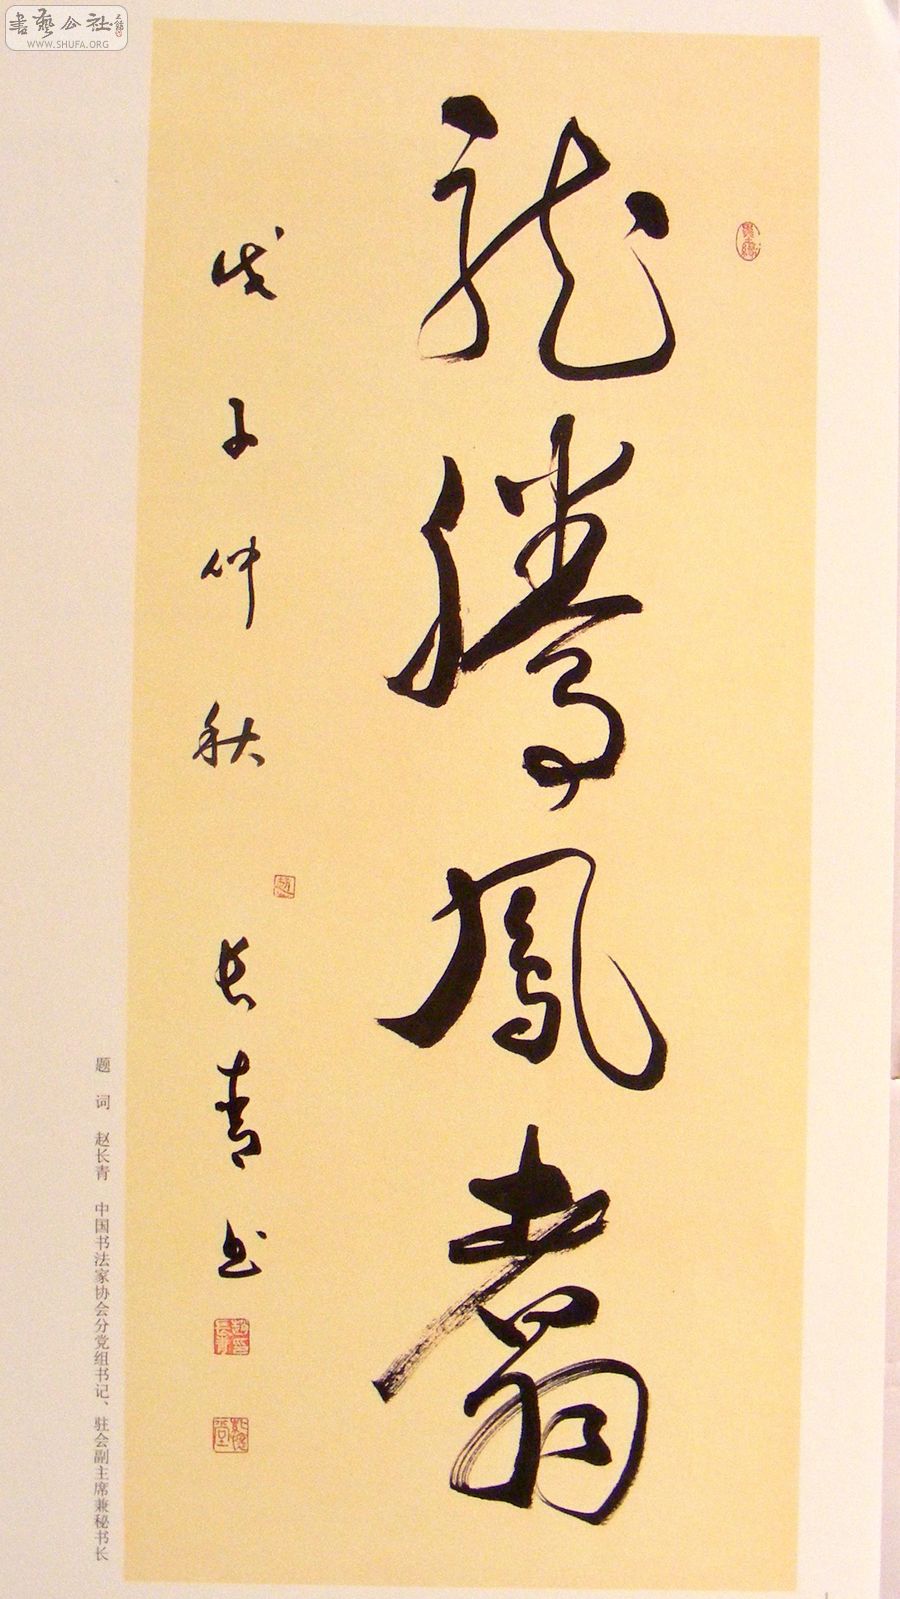 書藝公社
WWW.SHUFA.ORG
龍騰鳳翥
戊子仲秋
长青书
题 词 赵长青 中国书法家协会分党组书记、驻会副主席兼秘书长